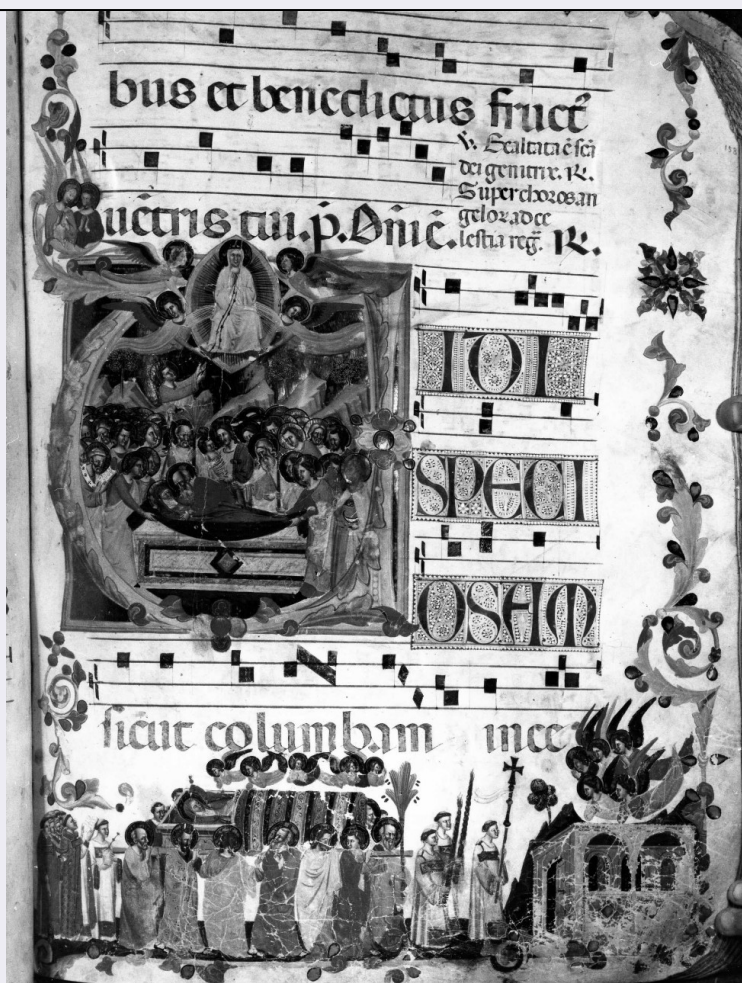 bus et benedictus fruct᷒
V. Exaltata ē scā
dei genitrix. R.
Super choros an
geloꝝ ad ce
lestia reḡ. R.
uētris tui. p̄. Dn̄ic̄.
IDI
SPECI
OSAM
sicut columbam